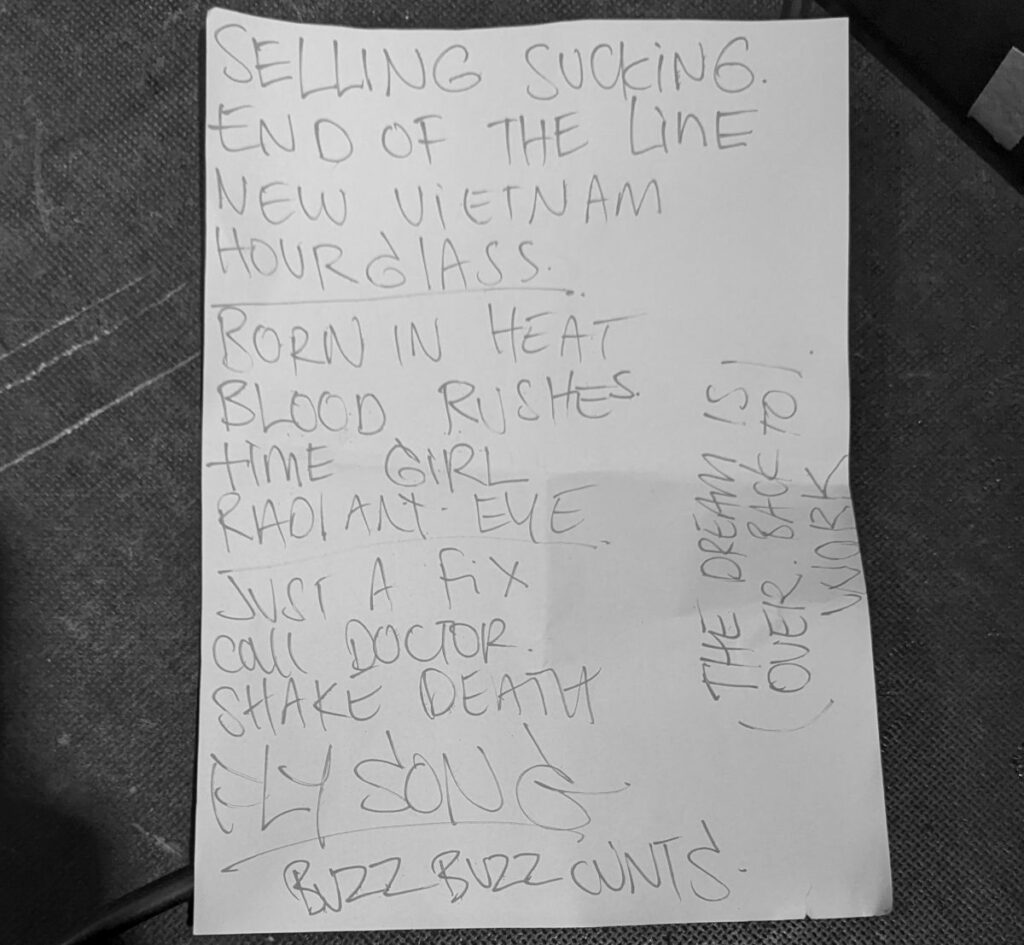 SELLING SUCKING.
END OF THE LINE
NEW VIETNAM
HOURGLASS.
BORN IN HEAT
BLOOD RUSHES
TIME GIRL
RADIANT EYE
JUST A FIX
CALL DOCTOR.
SHAKE DEATH
FLY SONG
BUZZ BUZZ CUNTS.
(THE DREAM IS
OVER. BACK TO).
WORK